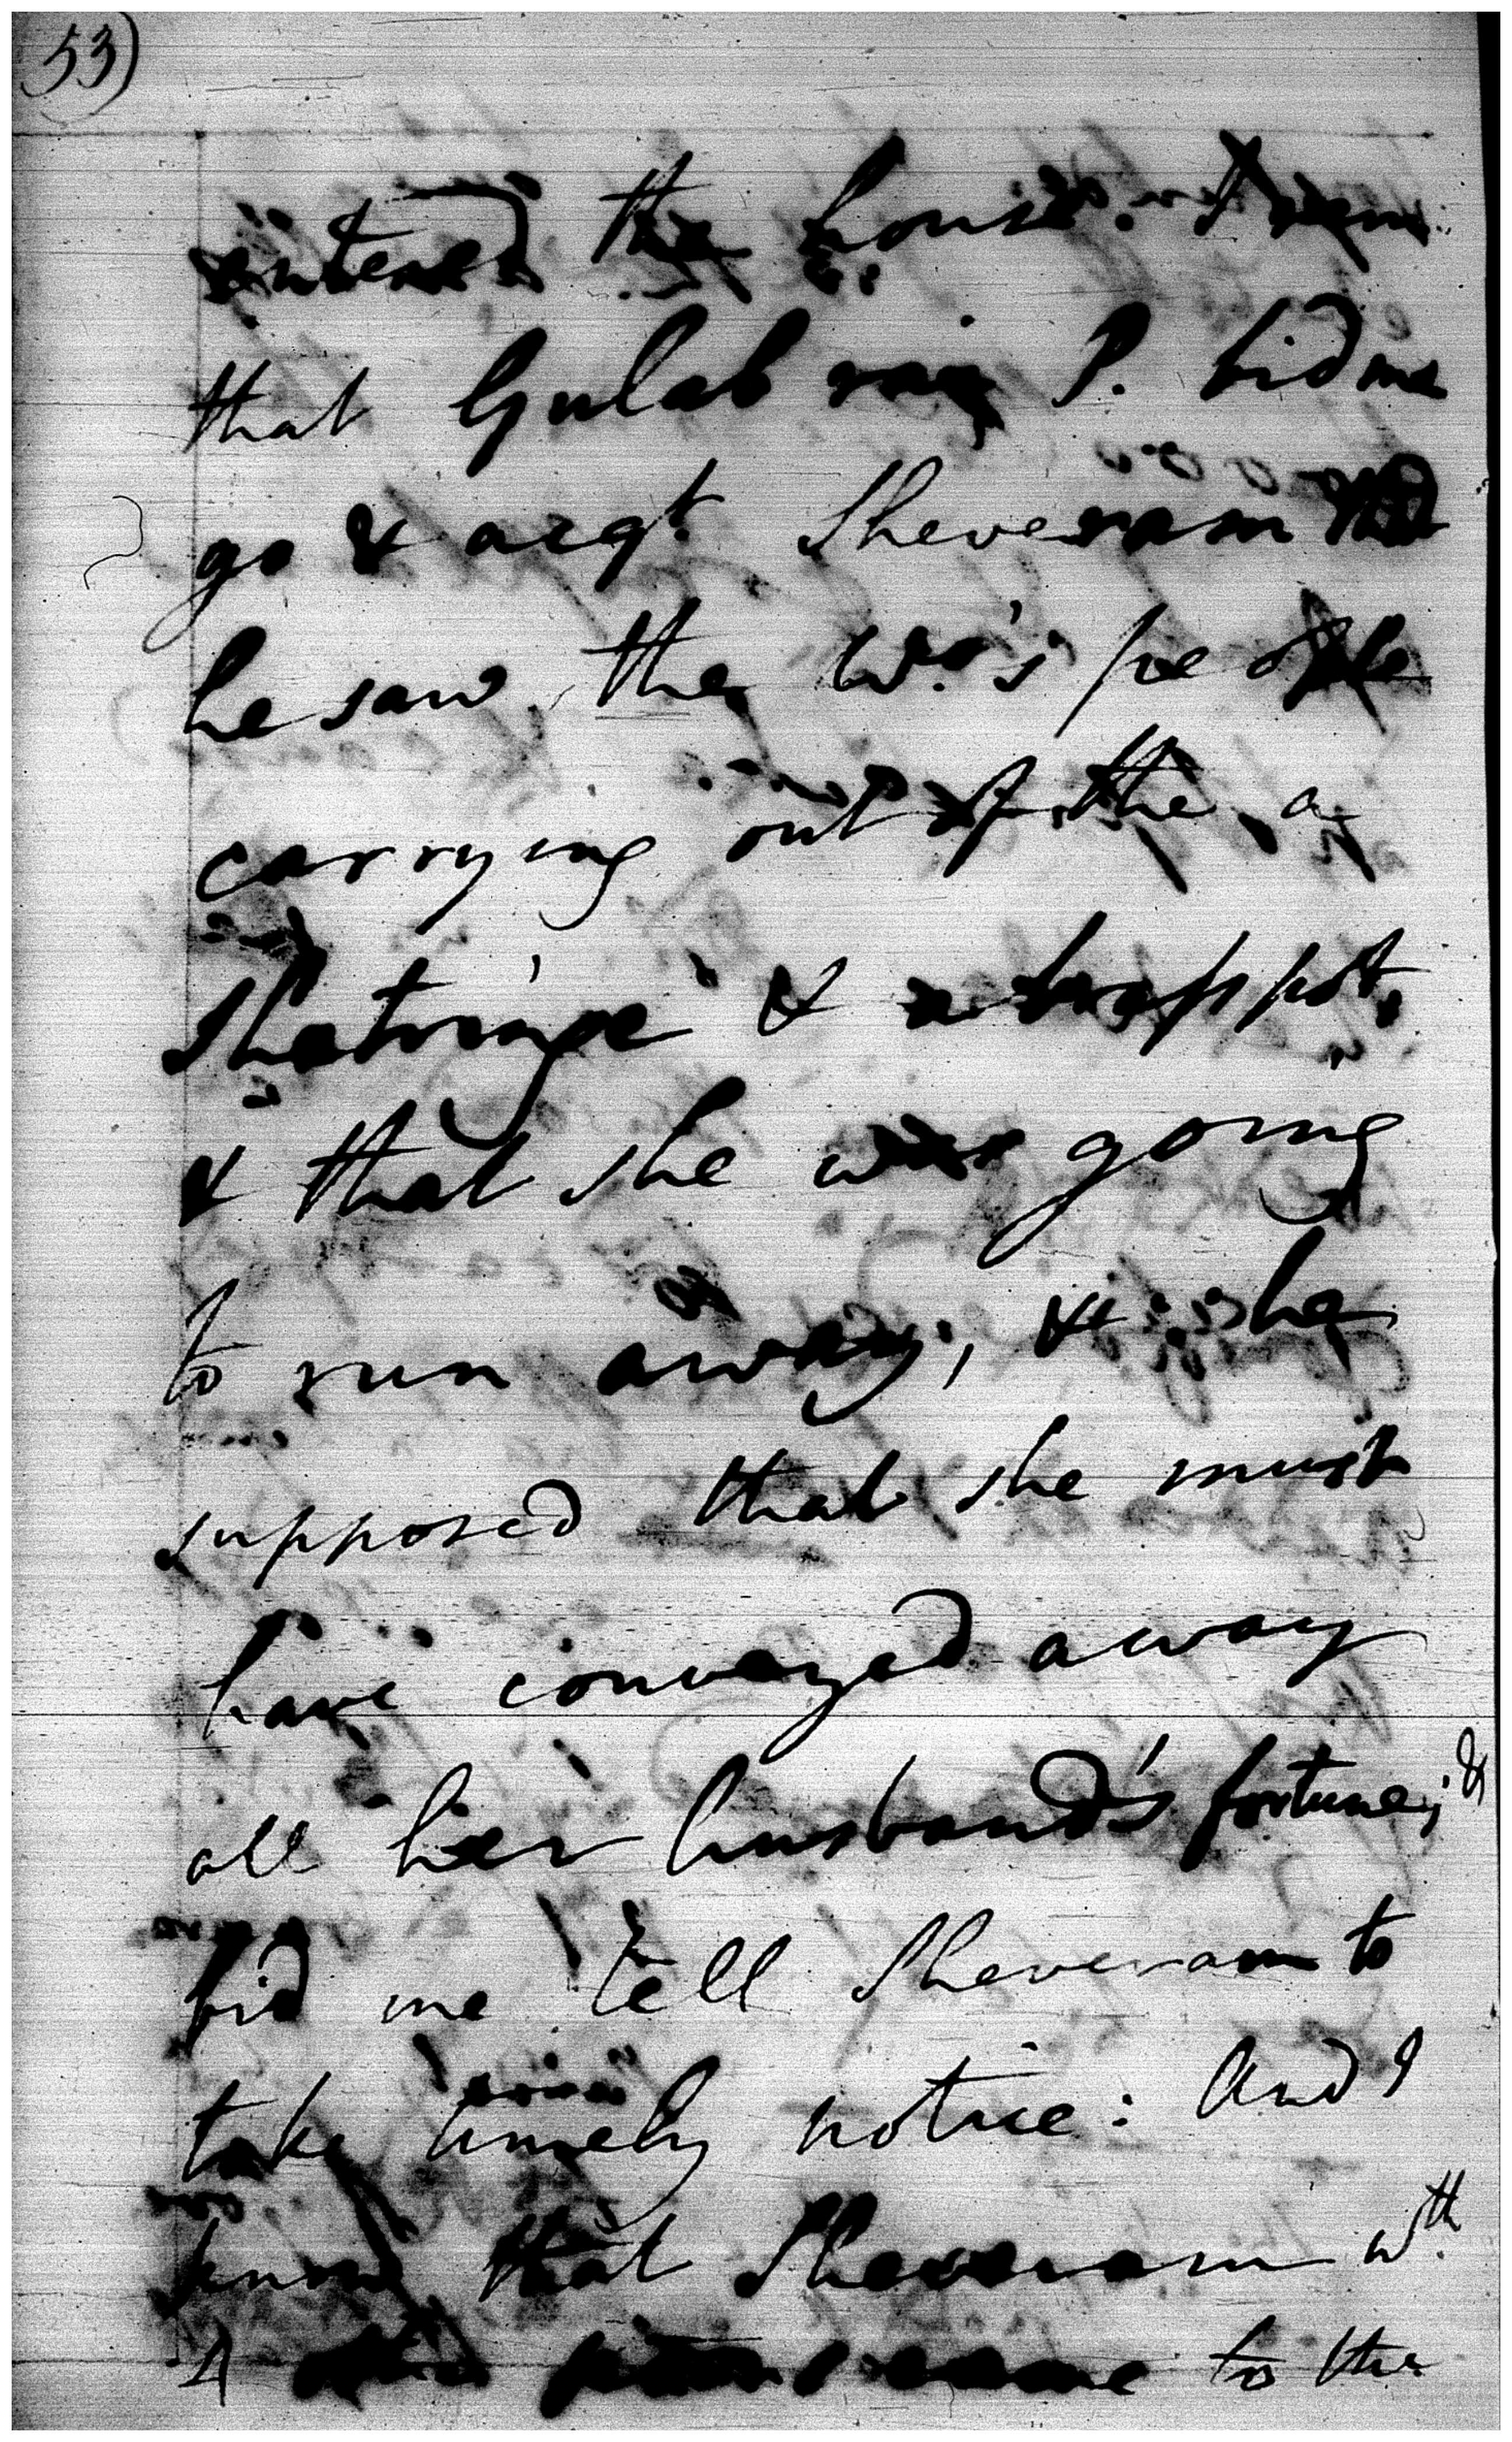 53)
entered the house.
that Gulab P. bid me
go & acqt. Sheveram that
he saw the W.'s people
carrying out of the a
Shatringe & a brass pot,
& that she was going
to run away; & he
supposed that she must
have conveyed away
all her husband's fortune; &
bid me tell Sheveram to
take timely notice: And I
know that Sheveram wth.
4 to the